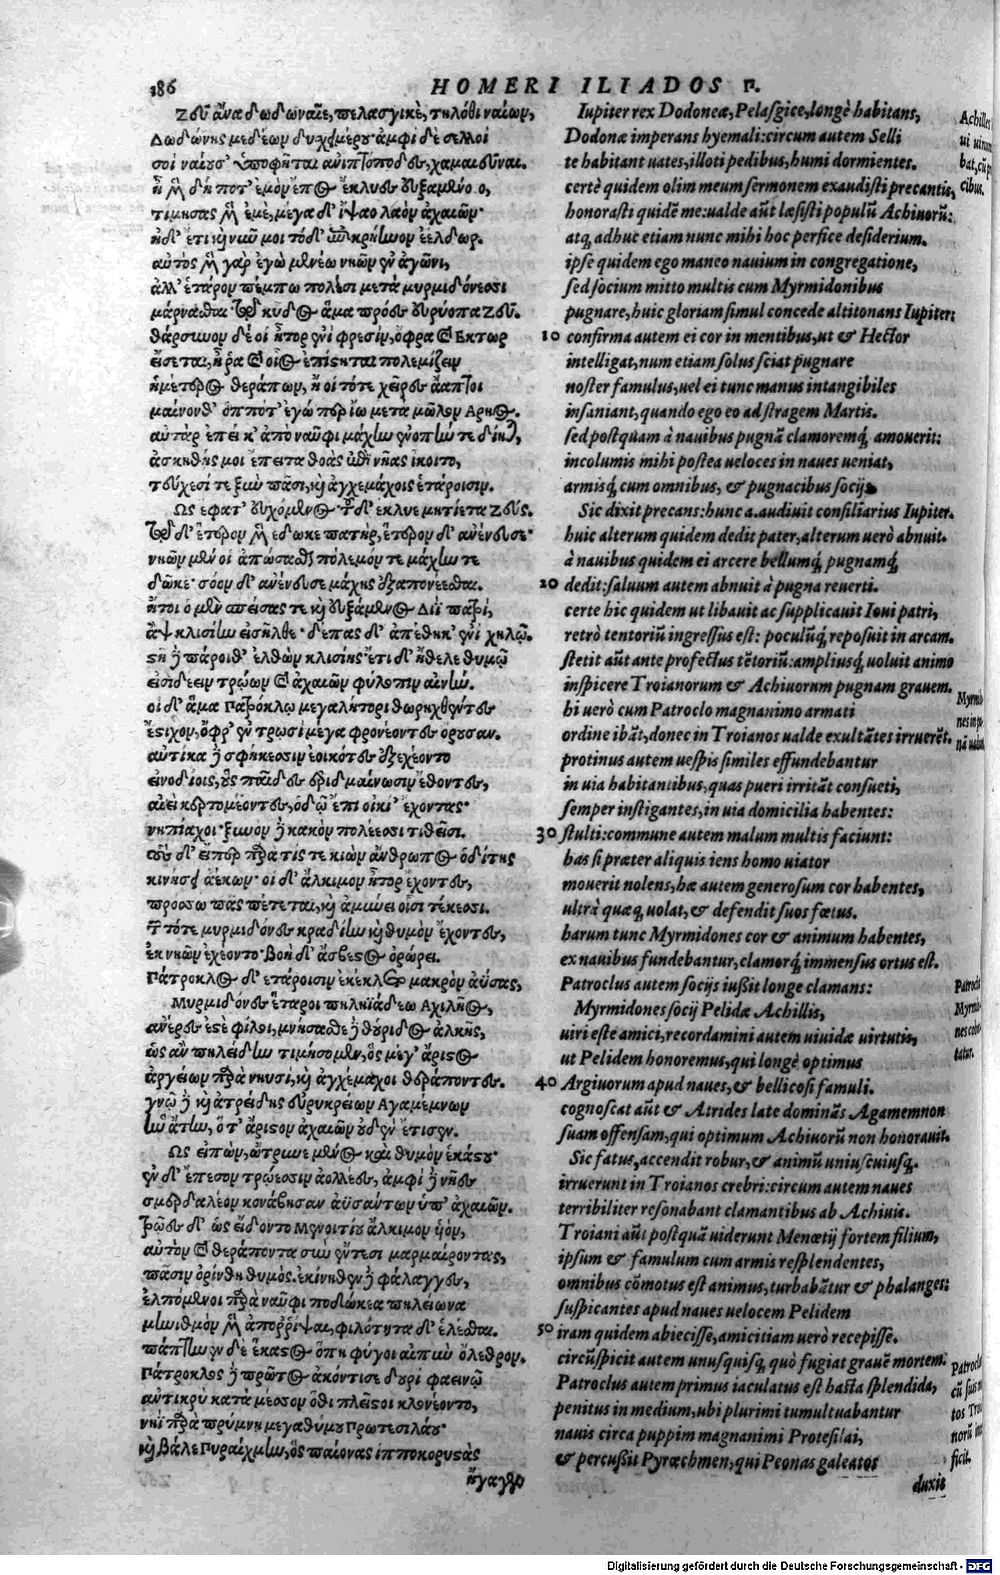 186 HOMERI ILIADOS Π.
Ζεῦ ἄνα δωδωναῖε, πελασγικὲ, τηλόθι ναίων,
Δωδώνης μεδέων δυσχειμέρου· ἀμφὶ δὲ σελλοὶ
σοὶ ναίουσ' ὑποφῆται ἀνιπτόποδες, χαμαιεῦναι.
ἦ μὲν δή ποτ' ἐμὸν ἔπος ἔκλυες εὐξαμένοιο,
τιμήσας μὲν ἐμὲ, μέγα δ' ἴψαο λαὸν ἀχαιῶν·
ἠδ' ἔτι καὶ νῦν μοι τόδ' ἐπικρήηνον ἐέλδωρ.
αὐτὸς μὲν γὰρ ἐγὼ μενέω νηῶν ἐν ἀγῶνι,
ἀλλ' ἕταρον πέμπω πολέσι μετὰ μυρμιδόνεσσι
μάρνασθαι· τῷ κῦδος ἅμα πρόες εὐρύοπα Ζεῦ.
θάρσυνον δέ οἱ ἦτορ ἐνὶ φρεσὶν, ὄφρα καὶ Εκτωρ
εἴσεται, ἤ ῥα καὶ οἶος ἐπίστηται πολεμίζειν
ἡμέτερος θεράπων, ἤ οἱ τότε χεῖρες ἄαπτοι
μαίνονθ' ὁππότ' ἐγώ περ ἴω μετὰ μῶλον Αρηος.
αὐτὰρ ἐπεί κ' ἀπὸ ναῦφι μάχην ἐνοπήν τε δίηται,
ἀσκηθής μοι ἔπειτα θοὰς ἐπὶ νῆας ἵκοιτο,
τεύχεσί τε ξὺν πᾶσι, καὶ ἀγχεμάχοις ἑτάροισιν.
Ως ἔφατ' εὐχόμενος· τοῦ δ' ἔκλυε μητίετα Ζεύς.
τῷ δ' ἕτερον μὲν ἔδωκε πατὴρ, ἕτερον δ' ἀνένευσε·
νηῶν μέν οἱ ἀπώσασθαι πόλεμόν τε μάχην τε
δῶκε· σόον δ' ἀνένευσε μάχης ἐξαπονέεσθαι.
ἤτοι ὁ μὲν σπείσας τε καὶ εὐξάμενος Διὶ πατρὶ,
ἂψ κλισίην εἰσῆλθε· δέπας δ' ἀπέθηκ' ἐνὶ χηλῷ.
στῆ δὲ πάροιθ' ἐλθὼν κλισίης· ἔτι δ' ἤθελε θυμῷ
εἰσιδέειν τρώων καὶ ἀχαιῶν φύλοπιν αἰνήν.
οἱ δ' ἅμα Πατρόκλῳ μεγαλήτορι θωρηχθέντες
ἔστιχον, ὄφρ' ἐν τρωσὶ μέγα φρονέοντες ὄρουσαν.
αὐτίκα δὲ σφήκεσσιν ἐοικότες ἐξεχέοντο
εἰνοδίοις, οὓς παῖδες ἐριδμαίνωσιν ἔθοντες,
αἰεὶ κερτομέοντες, ὁδῷ ἔπι οἰκί' ἔχοντας·
νηπίαχοι· ξυνὸν δὲ κακὸν πολέεσσι τιθεῖσι.
τοὺς δ' εἴπερ παρά τίς τε κιὼν ἄνθρωπος ὁδίτης
κινήσῃ ἀέκων· οἱ δ' ἄλκιμον ἦτορ ἔχοντες,
πρόσσω πᾶς πέτεται, καὶ ἀμύνει οἷσι τέκεσσι.
τῶν τότε μυρμιδόνες κραδίην καὶ θυμὸν ἔχοντες,
ἐκ νηῶν ἐχέοντο· βοὴ δ' ἄσβεστος ὀρώρει.
Πάτροκλος δ' ἑτάροισιν ἐκέκλετο μακρὸν ἀΰσας,
Μυρμιδόνες ἕταροι πηληϊάδεω Αχιλῆος,
ἀνέρες ἐστὲ φίλοι, μνήσασθε δὲ θούριδος ἀλκῆς,
ὡς ἂν πηλείδην τιμήσομεν, ὃς μέγ' ἄριστος
ἀργείων παρὰ νηυσὶ, καὶ ἀγχέμαχοι θεράποντες.
γνῷ δὲ καὶ ἀτρείδης εὐρυκρείων Αγαμέμνων
ἣν ἄτην, ὅ τ' ἄριστον ἀχαιῶν οὐδὲν ἔτισεν.
Ως εἰπὼν, ὤτρυνε μένος καὶ θυμὸν ἑκάστου·
ἐν δ' ἔπεσον τρώεσσιν ἀολλέες, ἀμφὶ δὲ νῆες
σμερδαλέον κονάβησαν ἀϋσάντων ὑπ' ἀχαιῶν.
τρῶες δ' ὡς εἴδοντο Μενοιτίου ἄλκιμον υἱὸν,
αὐτὸν καὶ θεράποντα σὺν ἔντεσι μαρμαίροντας,
πᾶσιν ὀρίνθη θυμὸς. ἐκίνηθεν δὲ φάλαγγες,
ἐλπόμενοι παρὰ ναῦφι ποδώκεα πηλείωνα
μηνιθμὸν μὲν ἀπορρῖψαι, φιλότητα δ' ἑλέσθαι.
πάπτηνεν δὲ ἕκαστος ὅπη φύγοι αἰπὺν ὄλεθρον.
Πάτροκλος δὲ πρῶτος ἀκόντισε δουρὶ φαεινῷ
ἀντικρὺ κατὰ μέσσον ὅθι πλεῖστοι κλονέοντο,
νηῒ παρὰ πρύμνῃ μεγαθύμου Πρωτεσιλάου·
καὶ βάλε Πυραίχμην, ὃς παίονας ἱπποκορυστὰς
ἤγαγεν
Iupiter rex Dodoneæ, Pelasgice, longè habitans,
Dodonæ imperans hyemali: circum autem Selli
te habitant uates, illoti pedibus, humi dormientes.
certè quidem olim meum sermonem exaudisti precantis,
honorasti quidẽ me: ualde aũt læsisti populũ Achiuorũ:
atq; adhuc etiam nunc mihi hoc perfice desiderium.
ipse quidem ego maneo nauium in congregatione,
sed socium mitto multis cum Myrmidonibus
pugnare, huic gloriam simul concede altitonans Iupiter:
10 confirma autem ei cor in mentibus, ut & Hector
intelligat, num etiam solus sciat pugnare
noster famulus, uel ei tunc manus intangibiles
insaniant, quando ego eo ad stragem Martis.
sed postquam à nauibus pugnã clamoremq; amouerit:
incolumis mihi postea ueloces in naues ueniat,
armisq; cum omnibus, & pugnacibus socijs.
Sic dixit precans: hunc a. audiuit consiliarius Iupiter.
huic alterum quidem dedit pater, alterum uerò abnuit.
à nauibus quidem ei arcere bellumq; pugnamq;
20 dedit: saluum autem abnuit à pugna reuerti.
certe hic quidem ut libauit ac supplicauit Ioui patri,
retrò tentorium ingressus est: poculũq; reposuit in arcam.
stetit aũt ante profectus tẽtoriũ: ampliusq; uoluit animo
inspicere Troianorum & Achiuorum pugnam grauem.
hi uerò cum Patroclo magnanimo armati
ordine ibãt, donec in Troianos ualde exultãtes irruerẽt.
protinus autem uespis similes effundebantur
in uia habitantibus, quas pueri irritãt consueti,
semper instigantes, in uia domicilia habentes:
30 stulti: commune autem malum multis faciunt:
has si præter aliquis iens homo uiator
mouerit nolens, hæ autem generosum cor habentes,
ultrà quæq; uolat, & defendit suos fœtus.
harum tunc Myrmidones cor & animum habentes,
ex nauibus fundebantur, clamorq; immensus ortus est.
Patroclus autem socijs iußit longe clamans:
Myrmidones socij Pelidæ Achillis,
uiri este amici, recordamini autem uiuidæ uirtutis,
ut Pelidem honoremus, qui longè optimus
40 Argiuorum apud naues, & bellicosi famuli.
cognoscat aũt & Atrides late dominãs Agamemnon
suam offensam, qui optimum Achiuorũ non honorauit.
Sic fatus, accendit robur, & animũ uniuscuiusq;.
irruerunt in Troianos crebri: circum autem naues
terribiliter resonabant clamantibus ab Achiuis.
Troiani aũt postquã uiderunt Menœtij fortem filium,
ipsum & famulum cum armis resplendentes,
omnibus cõmotus est animus, turbabãtur & phalanges:
suspicantes apud naues uelocem Pelidem
50 iram quidem abiecisse, amicitiam uerò recepisse.
circũspicit autem unusquisq; quò fugiat grauẽ mortem.
Patroclus autem primus iaculatus est hasta splendida,
penitus in medium, ubi plurimi tumultuabantur
nauis circa puppim magnanimi Protesilai,
& percußit Pyræchmen, qui Peonas galeatos
duxit
Achilles
ui uinum
bat, cũ p
cibus.
Myrmid
nes in p
Patroclus
Myrmid
nes coho
tatur.
Patroclus
cũ suis
tos Tro
norũ
ficit.
Digitalisierung gefördert durch die Deutsche Forschungsgemeinschaft - DFG